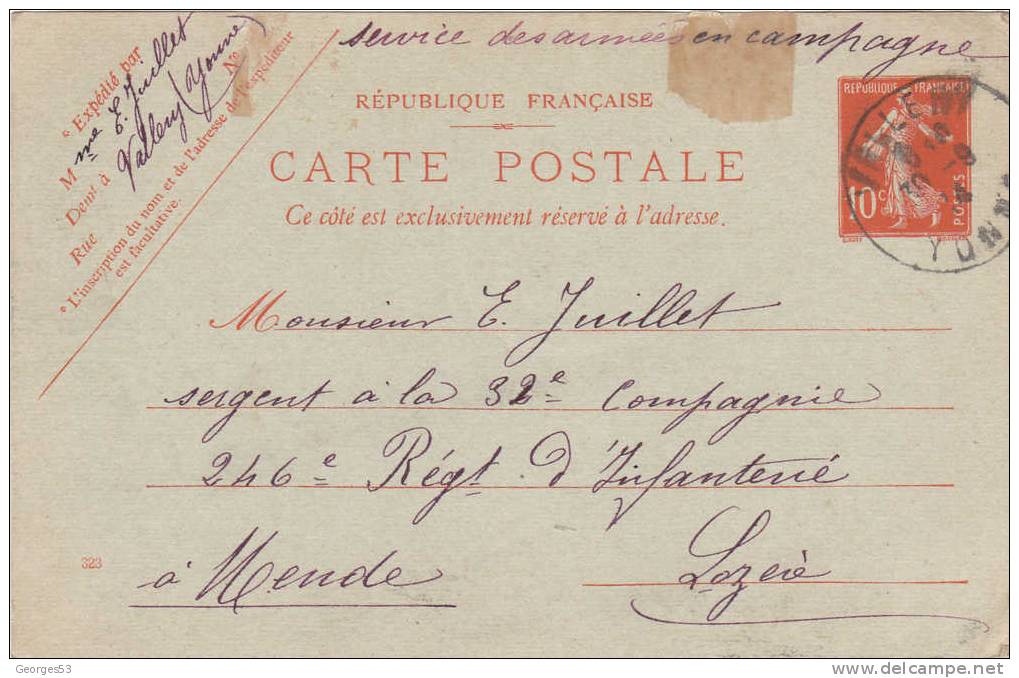 service des armées en campagne
* Expédié par
Mme E. Juillet
Demt à Vallery (Yonne)
Rue Nº
* L'inscription du nom et de l'adresse de l'expéditeur
est facultative.
RÉPUBLIQUE FRANÇAISE
CARTE POSTALE
Ce côté est exclusivement réservé à l'adresse.
RÉPUBLIQUE FRANÇAISE
10 c
POSTES
YONNE
Monsieur E. Juillet
sergent à la 32e Compagnie
246e Régt. d'Infanterie
à Mende Lozère
323
Georges53
delcampe.net